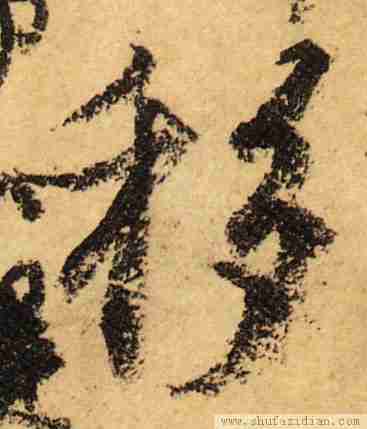 移
www.shufazidian.com